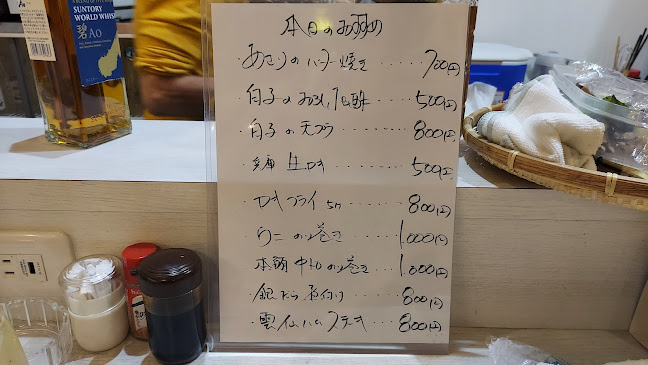 SUNTORY
WORLD WHISKY
碧Ao
本日のお奨め
・あさりのバター焼き……700円
・白子のみぞれポン酢……500円
・白子の天ぷら……800円
・兵庫 生カキ……500円
・カキフライ 5ケ……800円
・ウニのり巻き……1,000円
・本鮪中トロのり巻き…1,000円
・銀だら煮付け……800円
・雲仙ハムステーキ…800円